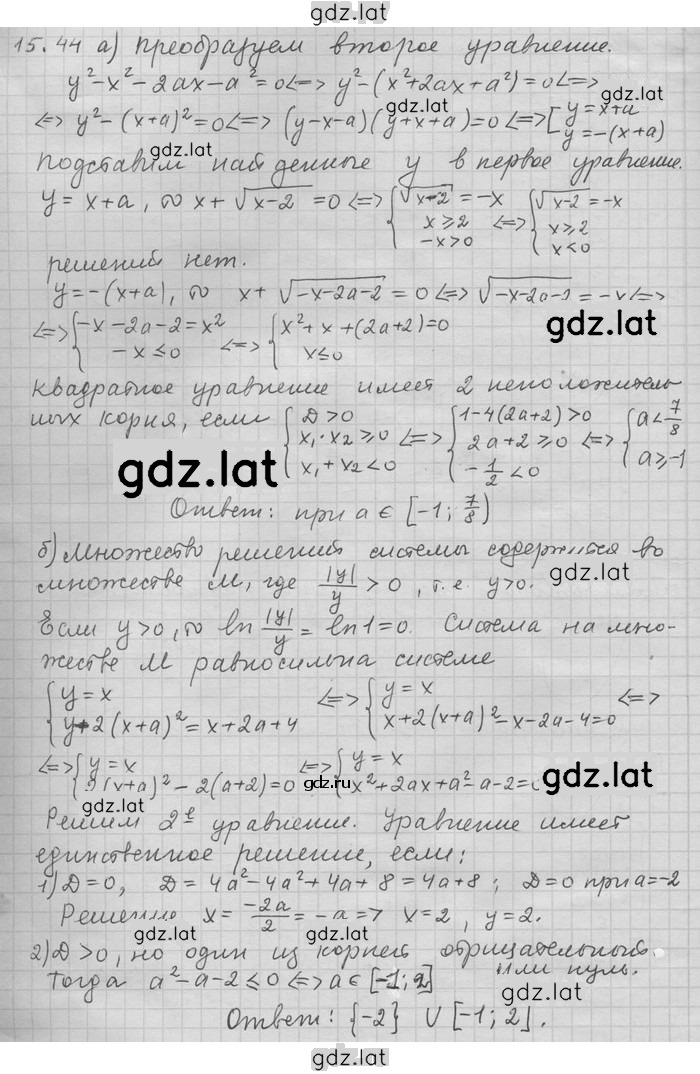 gdz.lat
15.44 а) Преобразуем второе уравнение.
y²-x²-2ax-a²=0<=> y²-(x²+2ax+a²)=0<=>
gdz.lat
<=> y²-(x+a)²=0<=> (y-x-a)(y+x+a)=0 <=> [y=x+a
y=-(x+a)
gdz.lat
gdz.lat
Подставим найденные y в первое уравнение.
y=x+a, то x+√x-2=0<=> {√x-2=-x <=> {√x-2=-x
x⩾2 x⩾2
-x>0 x<0
решений нет.
y=-(x+a), то x+√-x-2a-2=0<=> √-x-2a-2=-x<=>
gdz.lat
<=> {-x-2a-2=x² <=> {x²+x+(2a+2)=0
-x≤0 x≤0
Квадратное уравнение имеет 2 неположитель
ных корня, если {D>0 <=> {1-4(2a+2)>0 <=> {a<7/8
x₁·x₂⩾0 2a+2⩾0 a⩾-1
x₁+x₂<0 -1/2<0
gdz.lat
gdz.lat
Ответ: при a∈[-1; 7/8)
б) Множество решений системы содержится во
множестве M, где |y|/y>0, т.е. y>0.
gdz.lat
Если y>0, то ln |y|/y = ln1=0. Система на мно-
жестве M равносильна системе
{y=x <=> {y=x <=>
y+2(x+a)²=x+2a+4 x+2(x+a)²-x-2a-4=0
<=> {y=x <=> {y=x
2(x+a)²-2(a+2)=0 x²+2ax+a²-a-2=0
gdz.lat
gdz.ru
gdz.lat
Решим 2е уравнение. Уравнение имеет
единственное решение, если:
1) D=0, D=4a²-4a²+4a+8=4a+8; D=0 при a=-2
Решение x=-2a/2=-a=> x=2, y=2.
gdz.lat
gdz.lat
2) D>0, но один из корней отрицательный
или нуль.
Тогда a²-a-2≤0<=> a∈[-1;2]
gdz.lat
Ответ: {-2} ∪ [-1;2].
gdz.lat